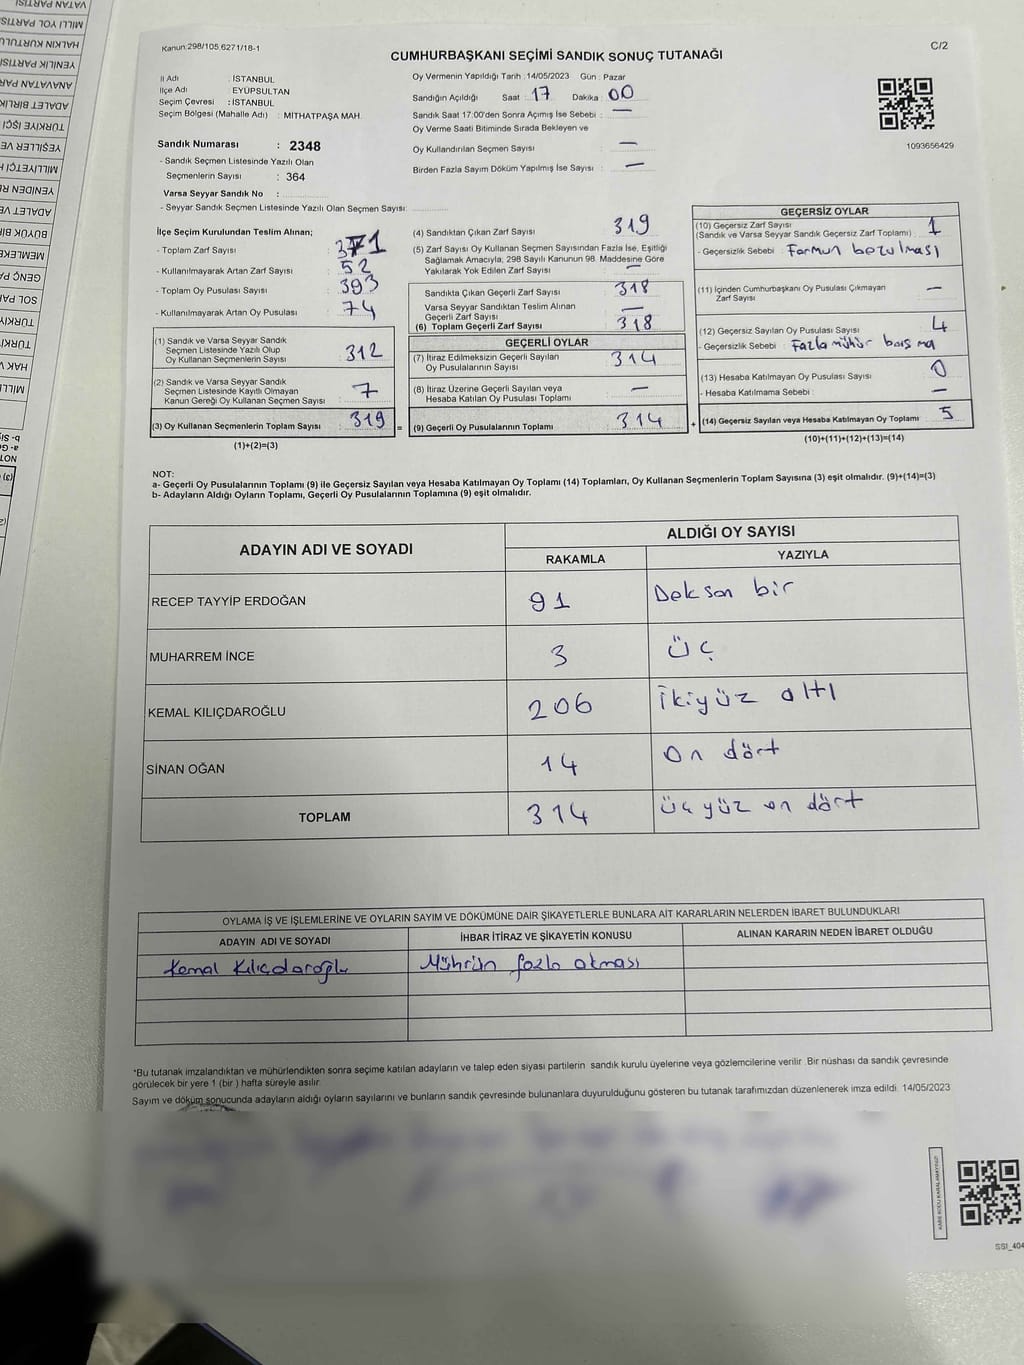 Kanun.298/105.6271/18-1
C/2
CUMHURBAŞKANI SEÇİMİ SANDIK SONUÇ TUTANAĞI
İl Adı : İSTANBUL
İlçe Adı : EYÜPSULTAN
Seçim Çevresi : İSTANBUL
Seçim Bölgesi (Mahalle Adı) : MİTHATPAŞA MAH.
Sandık Numarası : 2348
- Sandık Seçmen Listesinde Yazılı Olan
Seçmenlerin Sayısı : 364
Varsa Seyyar Sandık No :
- Seyyar Sandık Seçmen Listesinde Yazılı Olan Seçmen Sayısı:
Oy Vermenin Yapıldığı Tarih : 14/05/2023 Gün : Pazar
Sandığın Açıldığı Saat : 17 Dakika : 00
Sandık Saat 17:00'den Sonra Açımış İse Sebebi : —
Oy Verme Saati Bitiminde Sırada Bekleyen ve
Oy Kullandırılan Seçmen Sayısı : —
Birden Fazla Sayım Döküm Yapılmış İse Sayısı : —
1093656429
İlçe Seçim Kurulundan Teslim Alınan;
- Toplam Zarf Sayısı :
- Kullanılmayarak Artan Zarf Sayısı : 52
- Toplam Oy Pusulası Sayısı : 393
- Kullanılmayarak Artan Oy Pusulası : 74
(1) Sandık ve Varsa Seyyar Sandık
Seçmen Listesinde Yazılı Olup
Oy Kullanan Seçmenlerin Sayısı : 312
(2) Sandık ve Varsa Seyyar Sandık
Seçmen Listesinde Kayıtlı Olmayan
Kanun Gereği Oy Kullanan Seçmen Sayısı : 7
(3) Oy Kullanan Seçmenlerin Toplam Sayısı : 319
(1)+(2)=(3)
(4) Sandıktan Çıkan Zarf Sayısı : 319
(5) Zarf Sayısı Oy Kullanan Seçmen Sayısından Fazla İse, Eşitliği
Sağlamak Amacıyla, 298 Sayılı Kanunun 98. Maddesine Göre
Yakılarak Yok Edilen Zarf Sayısı : —
Sandıkta Çıkan Geçerli Zarf Sayısı : 318
Varsa Seyyar Sandıktan Teslim Alınan
Geçerli Zarf Sayısı : —
(6) Toplam Geçerli Zarf Sayısı : 318
GEÇERLİ OYLAR
(7) İtiraz Edilmeksizin Geçerli Sayılan
Oy Pusulalarının Sayısı : 314
(8) İtiraz Üzerine Geçerli Sayılan veya
Hesaba Katılan Oy Pusulası Toplamı : —
= (9) Geçerli Oy Pusulalarının Toplamı : 314
GEÇERSİZ OYLAR
(10) Geçersiz Zarf Sayısı
(Sandık ve Varsa Seyyar Sandık Geçersiz Zarf Toplamı) : 1
- Geçersizlik Sebebi : Formun bozulması
(11) İçinden Cumhurbaşkanı Oy Pusulası Çıkmayan
Zarf Sayısı : —
(12) Geçersiz Sayılan Oy Pusulası Sayısı : 4
- Geçersizlik Sebebi : Fazla mühür basma
(13) Hesaba Katılmayan Oy Pusulası Sayısı : 0
- Hesaba Katılmama Sebebi : —
+ (14) Geçersiz Sayılan veya Hesaba Katılmayan Oy Toplamı : 5
(10)+(11)+(12)+(13)=(14)
NOT:
a- Geçerli Oy Pusulalarının Toplamı (9) ile Geçersiz Sayılan veya Hesaba Katılmayan Oy Toplamı (14) Toplamları, Oy Kullanan Seçmenlerin Toplam Sayısına (3) eşit olmalıdır. (9)+(14)=(3)
b- Adayların Aldığı Oyların Toplamı, Geçerli Oy Pusulalarının Toplamına (9) eşit olmalıdır.
ADAYIN ADI VE SOYADI
ALDIĞI OY SAYISI
RAKAMLA YAZIYLA
RECEP TAYYİP ERDOĞAN 91 Doksan bir
MUHARREM İNCE 3 üç
KEMAL KILIÇDAROĞLU 206 ikiyüz altı
SİNAN OĞAN 14 On dört
TOPLAM 314 üç yüz on dört
OYLAMA İŞ VE İŞLEMLERİNE VE OYLARIN SAYIM VE DÖKÜMÜNE DAİR ŞİKAYETLERLE BUNLARA AİT KARARLARIN NELERDEN İBARET BULUNDUKLARI
ADAYIN ADI VE SOYADI İHBAR İTİRAZ VE ŞİKAYETİN KONUSU ALINAN KARARIN NEDEN İBARET OLDUĞU
Kemal Kılıçdaroğlu Mührün fazla olması
*Bu tutanak imzalandıktan ve mühürlendikten sonra seçime katılan adayların ve talep eden siyasi partilerin sandık kurulu üyelerine veya gözlemcilerine verilir. Bir nüshası da sandık çevresinde
görülecek bir yere 1 (bir) hafta süreyle asılır.
Sayım ve döküm sonucunda adayların aldığı oyların sayılarını ve bunların sandık çevresinde bulunanlara duyurulduğunu gösteren bu tutanak tarafımızdan düzenlenerek imza edildi. 14/05/2023
KARE KODU KARALAMAYINIZ!
SSI_404
VATAN PARTİSİ
MİLLİ YOL PARTİSİ
HALKIN KURTULU
YENİLİK PARTİSİ
ANAVATAN PAR
ADALET BİRLİK
TÜRKİYE İŞÇİ
YEŞİLLER VE
MİLLİYETÇİ H
YENİDEN RE
ADALET VE
BÜYÜK BİR
MEMLEKE
GENÇ PA
SOL PAR
TÜRKİY
TÜRKİ
HAK V
MİLLİ